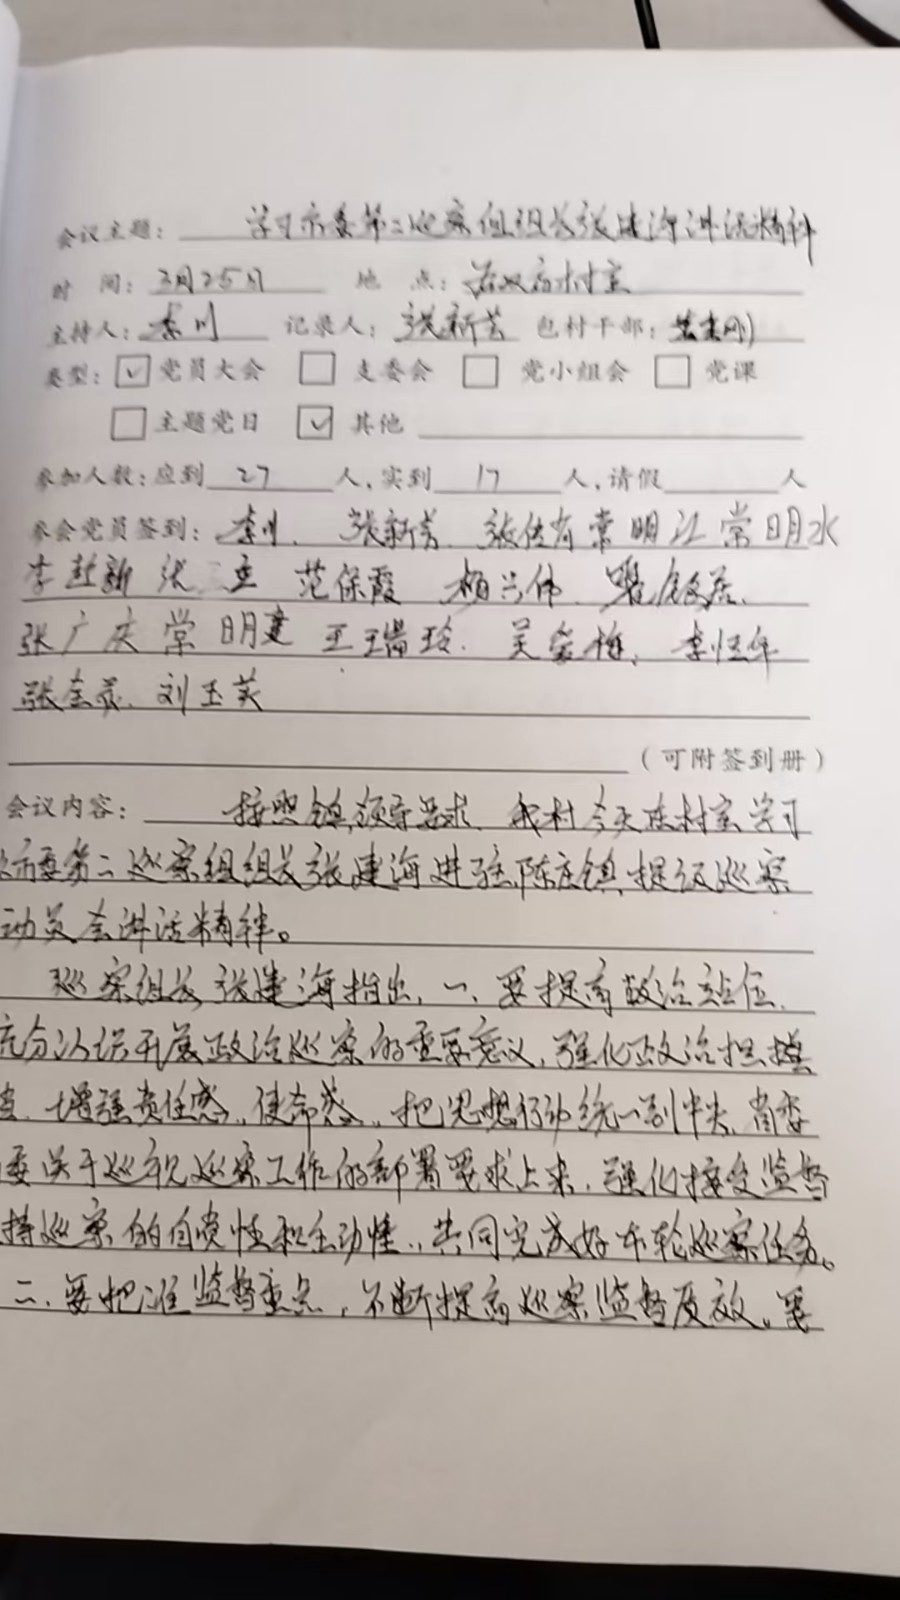 会议主题: 学习市委第二巡察组组长张建海讲话精神
时 间: 3月25日 地 点: 村室
主持人: 李川 记录人: 张新芳 包村干部:
类型: ☑ 党员大会 □ 支委会 □ 党小组会 □ 党课
□ 主题党日 ☑ 其他
参加人数: 应到 27 人, 实到 17 人, 请假 人
参会党员签到: 李川 张新芳 常明江 常明水
范保霞
张广庆 常明建 王瑞玲
刘玉英
(可附签到册)
会议内容: 按照镇领导要求, 我村今天在村室学习
市委第二巡察组组长张建海进驻陈庄镇提级巡察
动员会讲话精神。
巡察组长张建海指出, 一、要提高政治站位,
充分认识开展政治巡察的重要意义, 强化政治担
增强责任感、使命感, 把思想行动统一到中央、省委
委关于巡视巡察工作的部署要求上来, 强化接受监督
持巡察的自觉性和主动性, 共同完成好本轮巡察任务。
二、要把准监督重点, 不断提高巡察监督质效。要